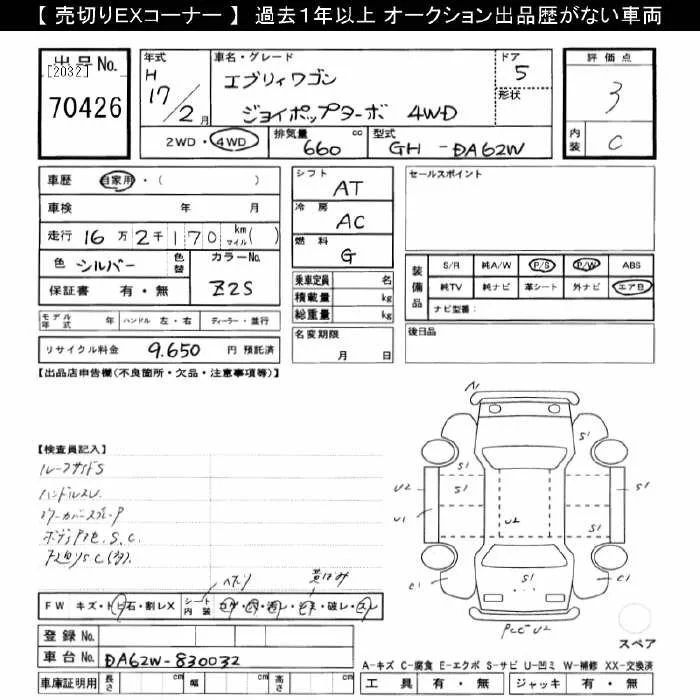 【 売切りEXコーナー 】 過去１年以上 オークション出品歴がない車両
出品No.
[2032]
70426
年式
H
17/2月
車名・グレード
エブリィワゴン
ジョイポップターボ 4WD
ドア
5
形状
2WD・4WD
排気量 cc
660
型式
GH-DA62W
評価点
3
内装
C
車歴 自家用・( )
車検 年 月
走行 16万2千170 km マイル( )
色 シルバー 色替 カラーNo.
保証書 有・無 Z2S
モデル年式 年 ハンドル 左・右 ディーラー・並行
リサイクル料金 9.650 円 預託済
シフト
AT
冷房
AC
燃料
G
乗車定員 名
積載量 kg
総重量 kg
名変期限
月 日
セールスポイント
装備品
S/R 純A/W P/S P/W ABS
純TV 純ナビ 革シート 外ナビ エアB
ナビ型番:
後日品
【出品店申告欄(不良箇所・欠品・注意事項等)】
【検査員記入】
ルーフサイドS
ハンドルスレ
S1 S1
S1 S1
U2 S1
U1 U2
C1 S1 C1
U2
スペア
FW キズ・トビ石・割レX
シート内装 コゲ・穴・汚レ・シミ・破レ・スレ
登録No.
車台No. DA62W-830032
車庫証明用 長さ cm 幅 cm 高さ cm
A-キズ C-腐食 E-エクボ S-サビ U-凹ミ W-補修 XX-交換済
工具 有・無 ジャッキ 有・無